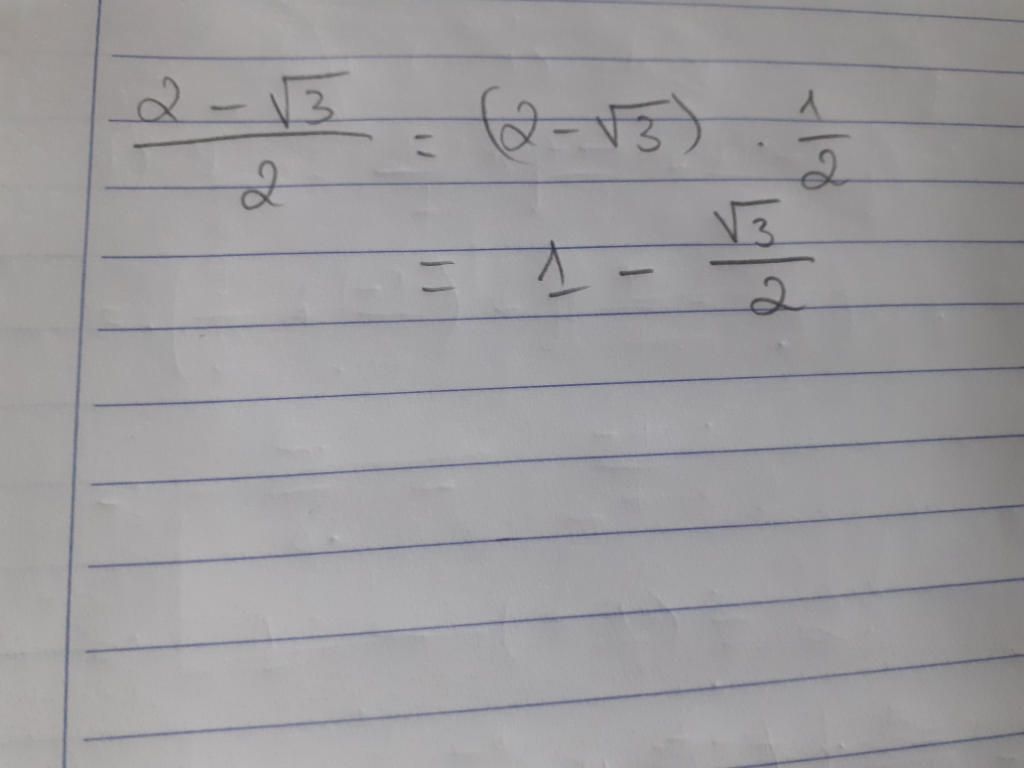 \frac{2 - \sqrt{3}}{2} = (2 - \sqrt{3}) \cdot \frac{1}{2}
= 1 - \frac{\sqrt{3}}{2}